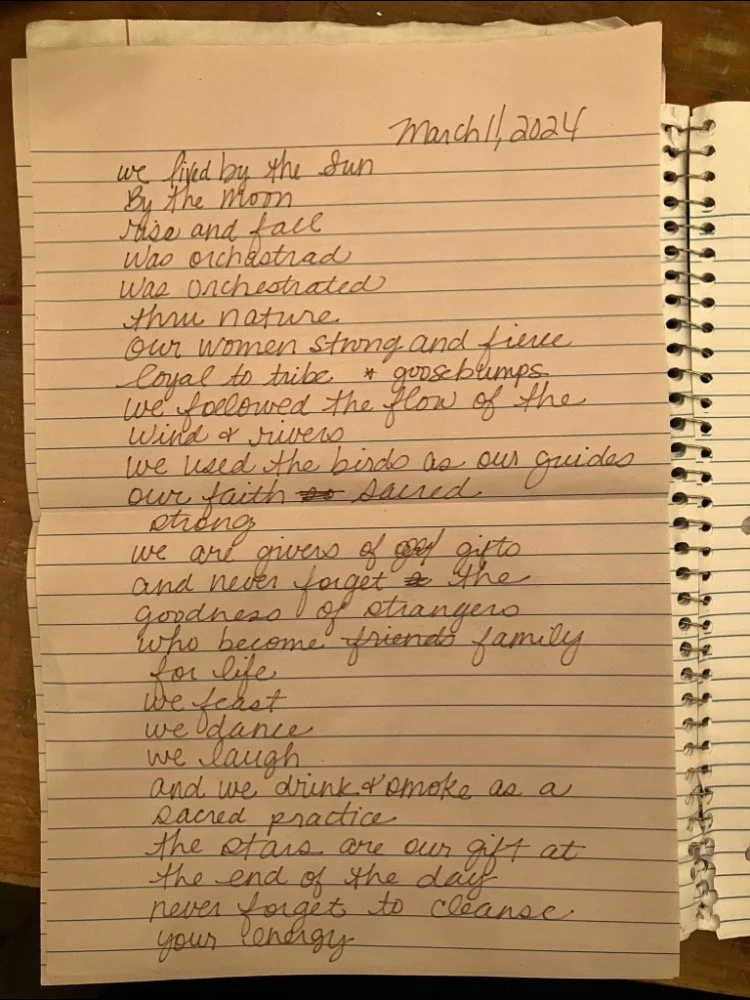 March 11, 2024
we lived by the Sun
By the Moon
rise and fall
was orchastrad
was orchestrated
thru nature
Our women strong and fierce
loyal to tribe * goosebumps
we followed the flow of the
Wind & rivers
we used the birds as our guides
our faith so sacred
strong
we are givers of gifts
and never forget the
goodness of strangers
who become friends family
for life
we feast
we dance
we laugh
and we drink & smoke as a
sacred practice
the stars are our gift at
the end of the day
never forget to cleanse
your energy